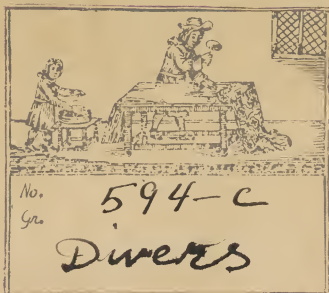 No. 594-C
Gr.
Divers